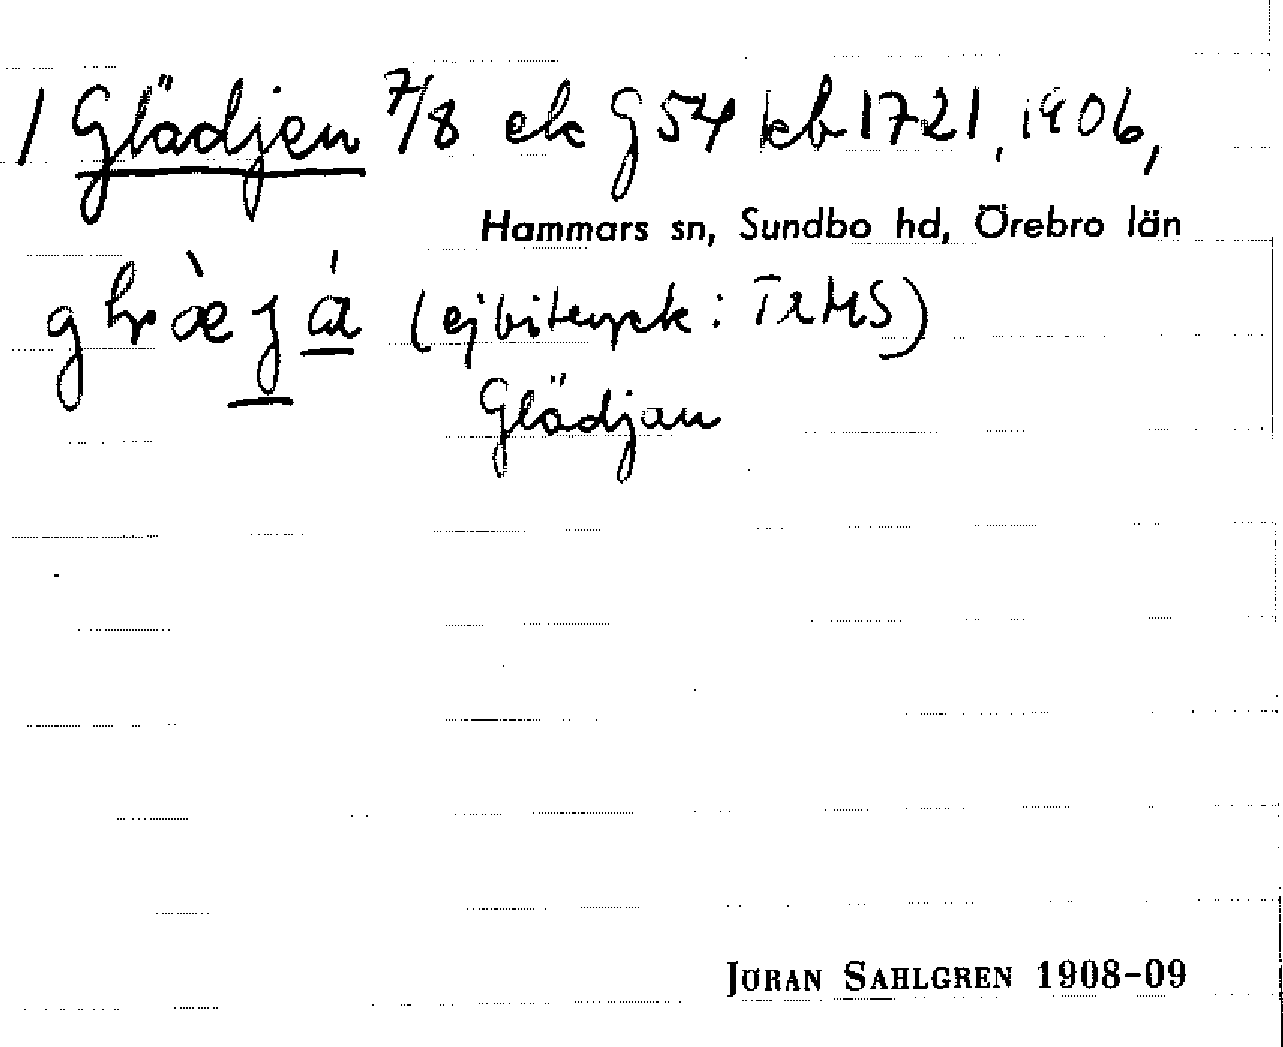 1 Glädjen 7/8 ek G 54 kb 1721, 1906,
Hammars sn, Sundbo hd, Örebro län
(ej bitryck: TRMS)
Glädjan
JÖRAN SAHLGREN 1908-09